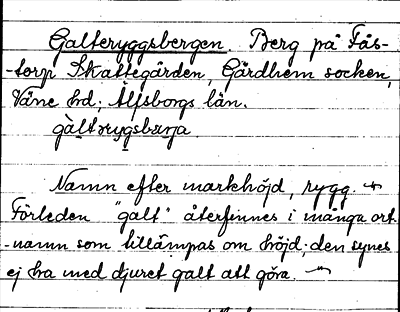 Galteryggsbergen. Berg på Fås-
-torp Skattegården, Gärdhem socken,
Väne hd; Älfsborgs län.
gàltrygsbærja.

Namn efter markhöjd, rygg.
Förleden "galt" återfinnes i många ort.
-namn som tillämpas om höjd, den synes
ej ha med djuret galt att göra.